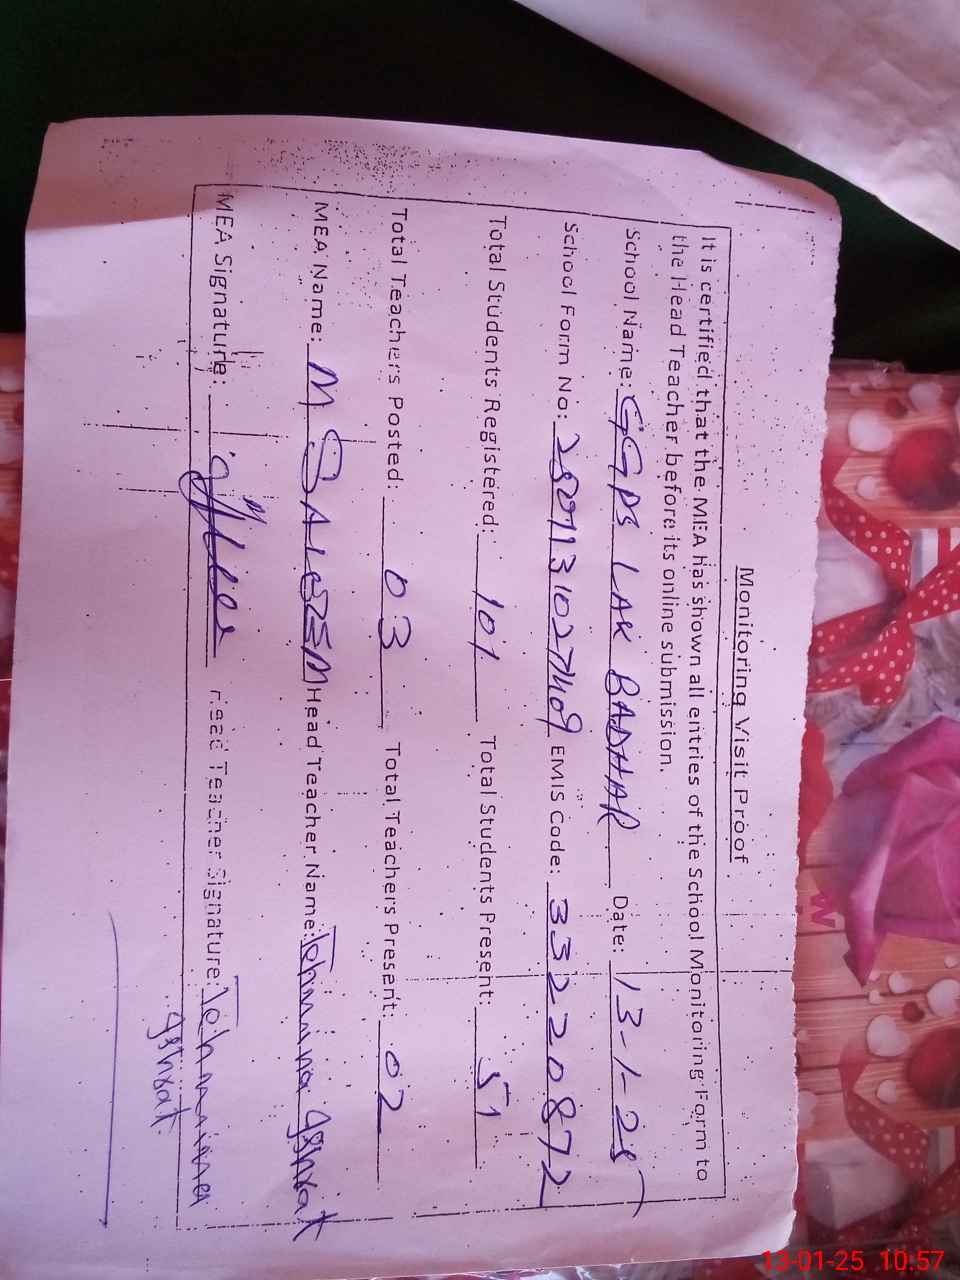 Monitoring Visit Proof
It is certified that the MEA has shown all entries of the School Monitoring Form to
the Head Teacher before its online submission.
School Name: GGPS LAK BADHAR Date: 13-1-25
School Form No: EMIS Code: 33220872
Total Students Registered: 101 Total Students Present: 51
Total Teachers Posted: 03 Total Teachers Present: 02
MEA Name: M SALEEM Head Teacher Name: Tehmina
MEA Signature: Head Teacher Signature: Tehmina
13-01-25 10:57